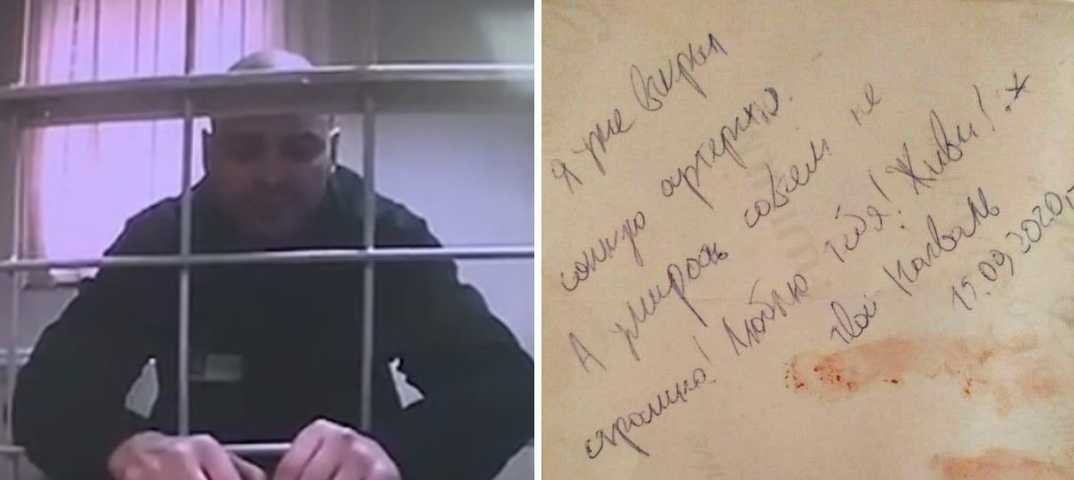 Я уже вскрыл
сонную артерию.
А умирать совсем не
страшно! Люблю тебя! Живи! :*
твой
15.09.2020г.